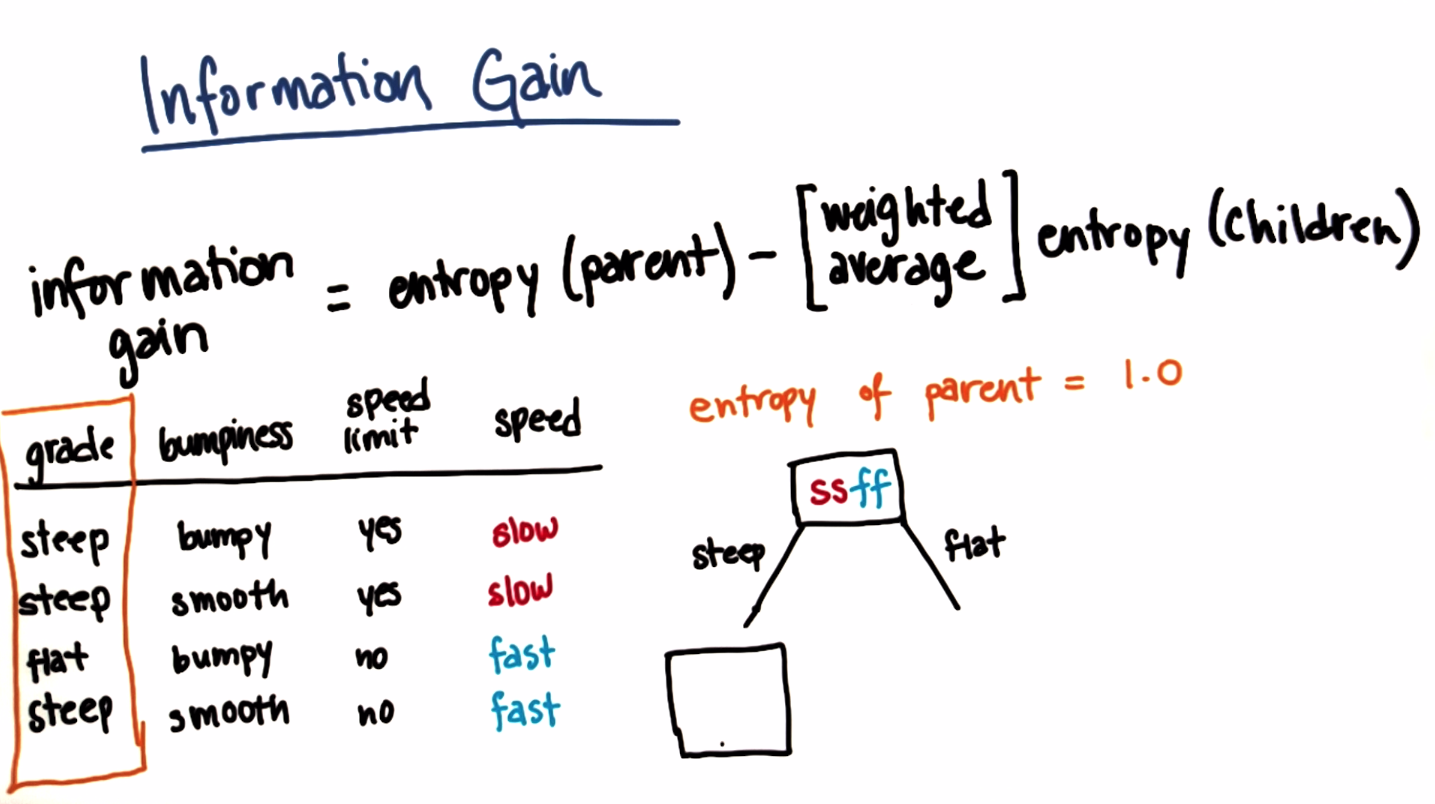 Information Gain
information gain = entropy (parent) - [weighted average] entropy (children)
grade bumpiness speed limit speed
steep bumpy yes slow
steep smooth yes slow
flat bumpy no fast
steep smooth no fast
entropy of parent = 1.0
ssff
steep flat